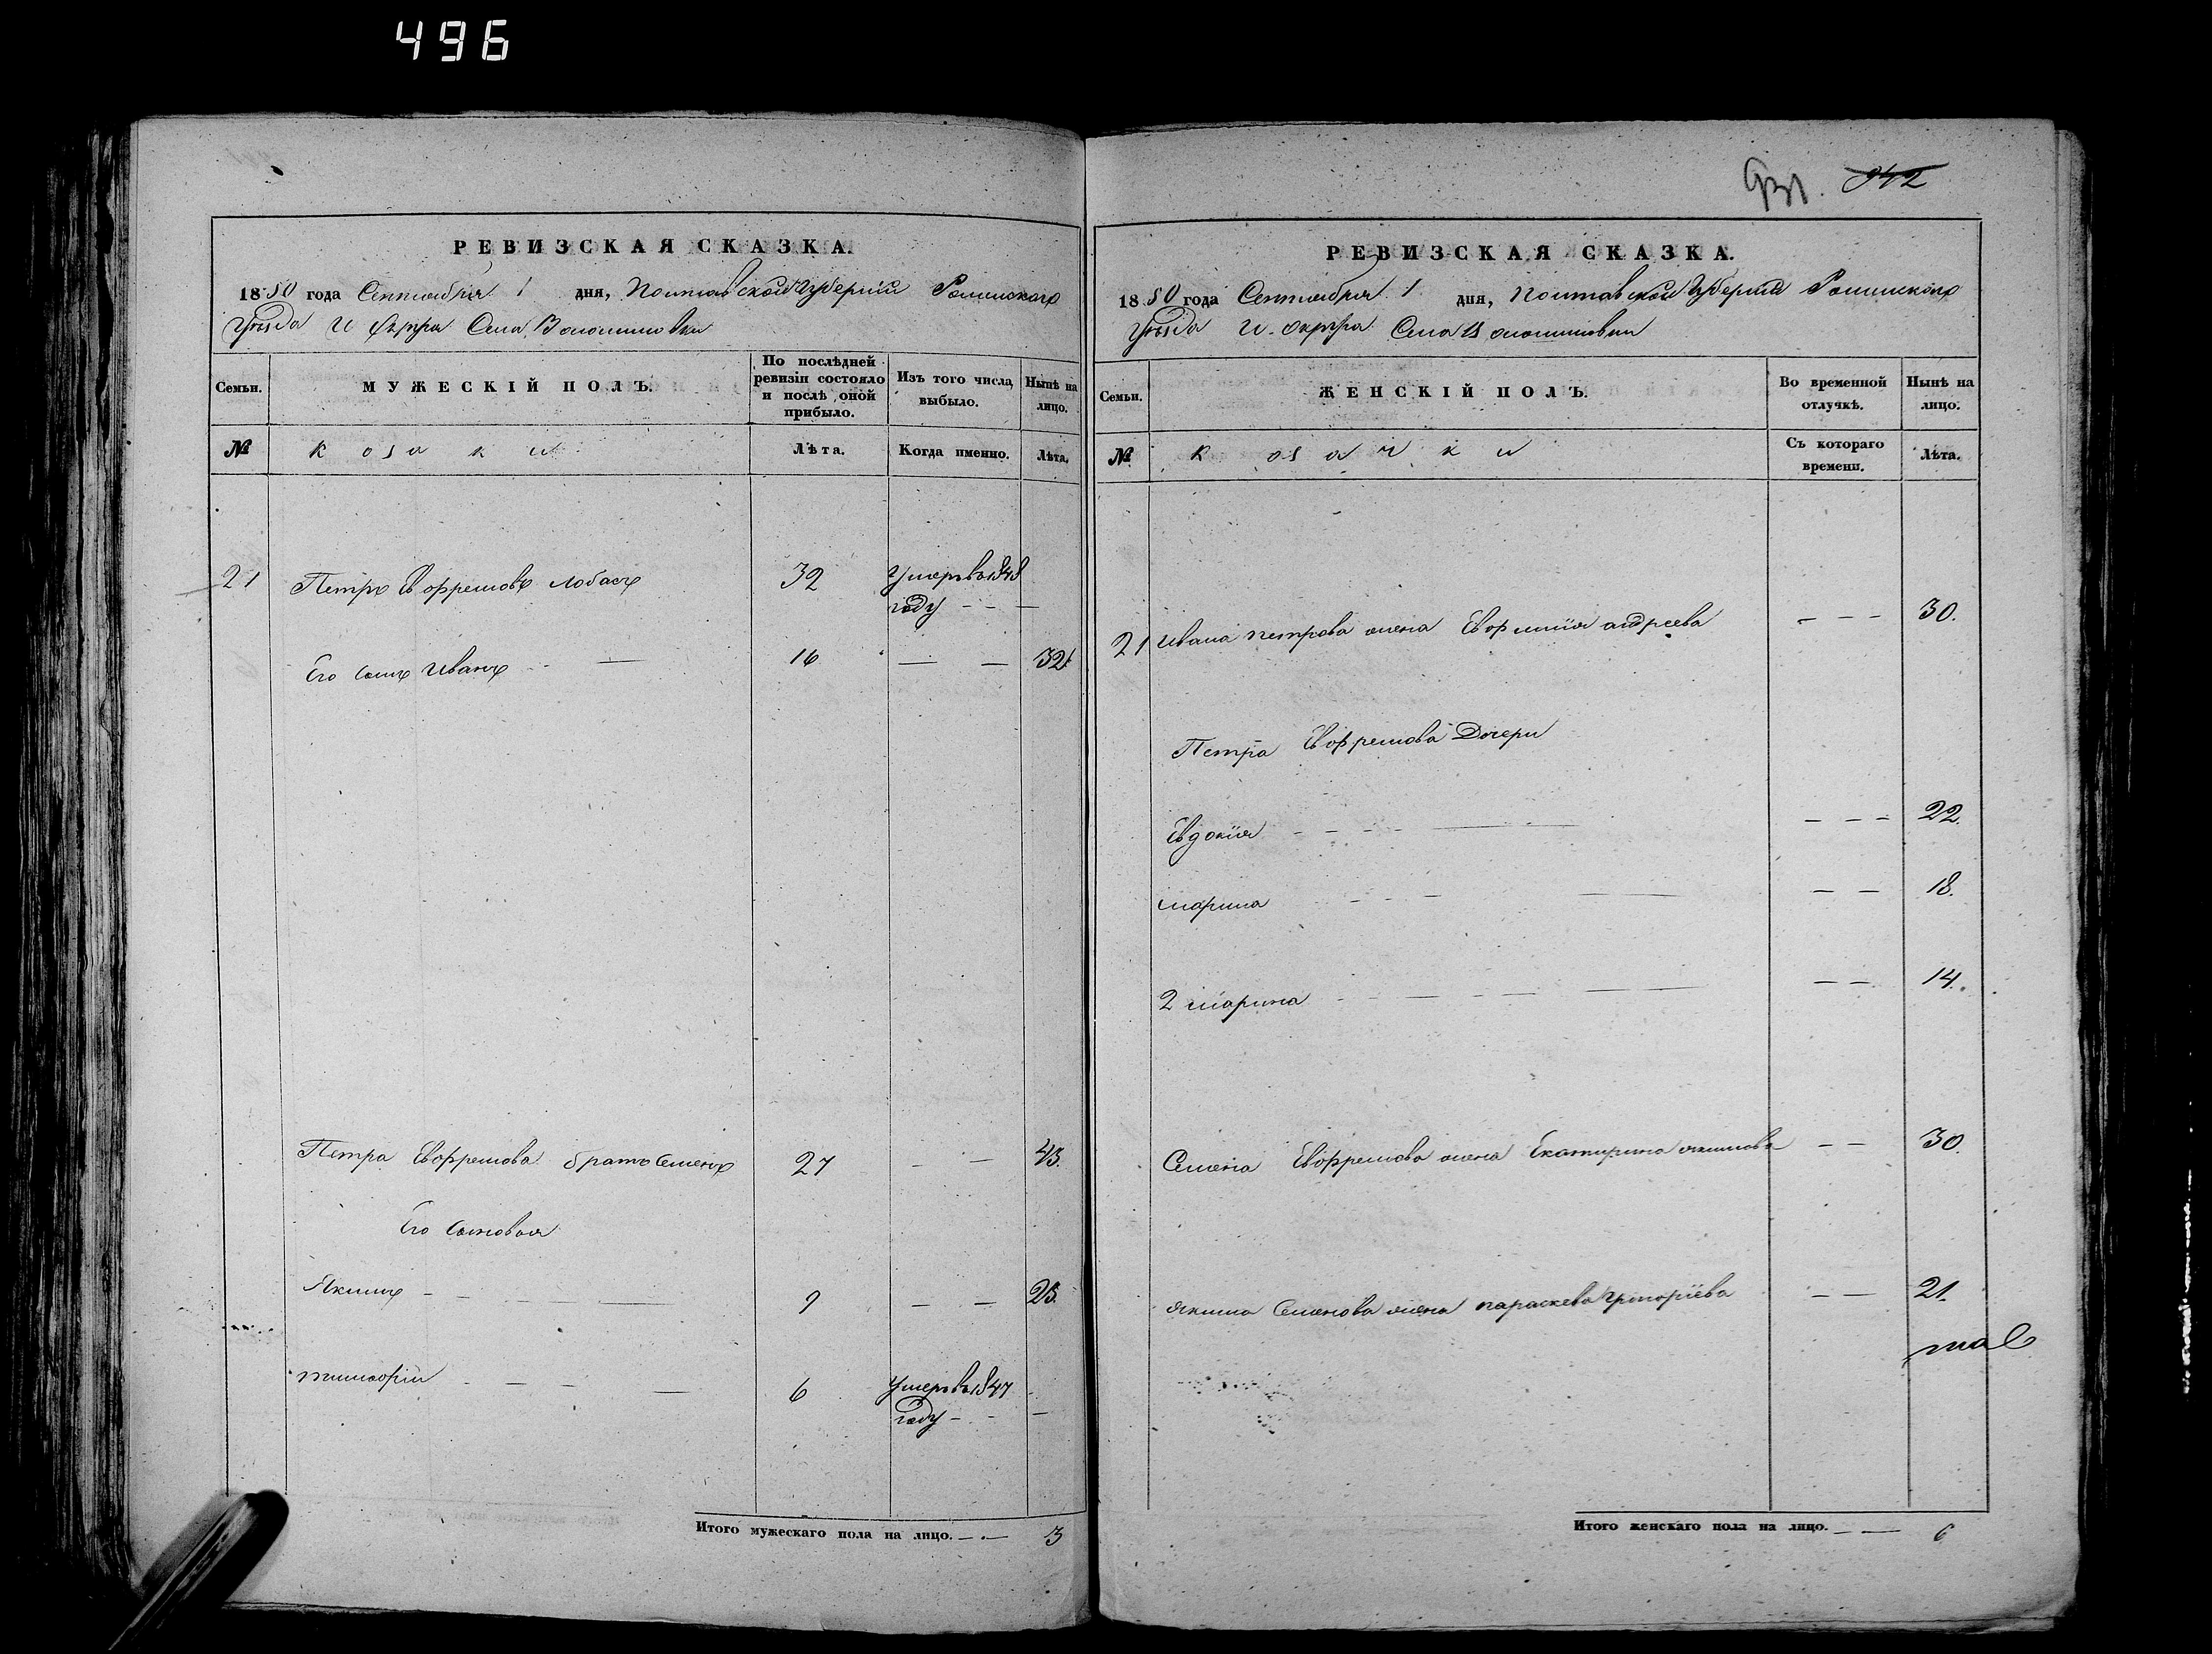 496
РЕВИЗСКАЯ СКАЗКА.
1850 года Сентября 1 дня, Полтавской Губернии Роменского
Уѣзда и Округа Села Волошиновки
Семьи.
МУЖЕСКІЙ ПОЛЪ.
По послѣдней ревизіи состояло и послѣ оной прибыло.
Изъ того числа выбыло.
Нынѣ на лицо.
№
козаки
Лѣта.
Когда именно.
Лѣта.
21 Петръ Евфремовъ Лобасъ 32 Умеръ въ 1848
году - - —
Его сынъ Иванъ - - — 16 — — 32
Петра Евфремова братъ Семенъ 27 - — 43.
Его сыновья
Якимъ - - - — — 9 — — 25.
тимофій - — - — 6 Умеръ въ 1847
году - - —
Итого мужескаго пола на лицо. — — 3
942
РЕВИЗСКАЯ СКАЗКА.
1850 года Сентября 1 дня, Полтавской Губерніи Роменского
Уѣзда и Округа Села Волошиновки
Семьи.
ЖЕНСКІЙ ПОЛЪ.
Во временной отлучкѣ.
Нынѣ на лицо.
№
козачки
Съ котораго времени.
Лѣта.
21 Ивана петрова жена Евфимия андреева - - - 30.
Петра Евфремова Дочери
Евдокия - - - - — — - - 22.
марина - - - — — — — 18.
2 марина - - — - — — — — 14.
Семена Евфремова жена Екатирина якимова — — 30.
якима Семенова жена параскева Григоріева — — 21.
Итого женскаго пола на лицо. — — 6